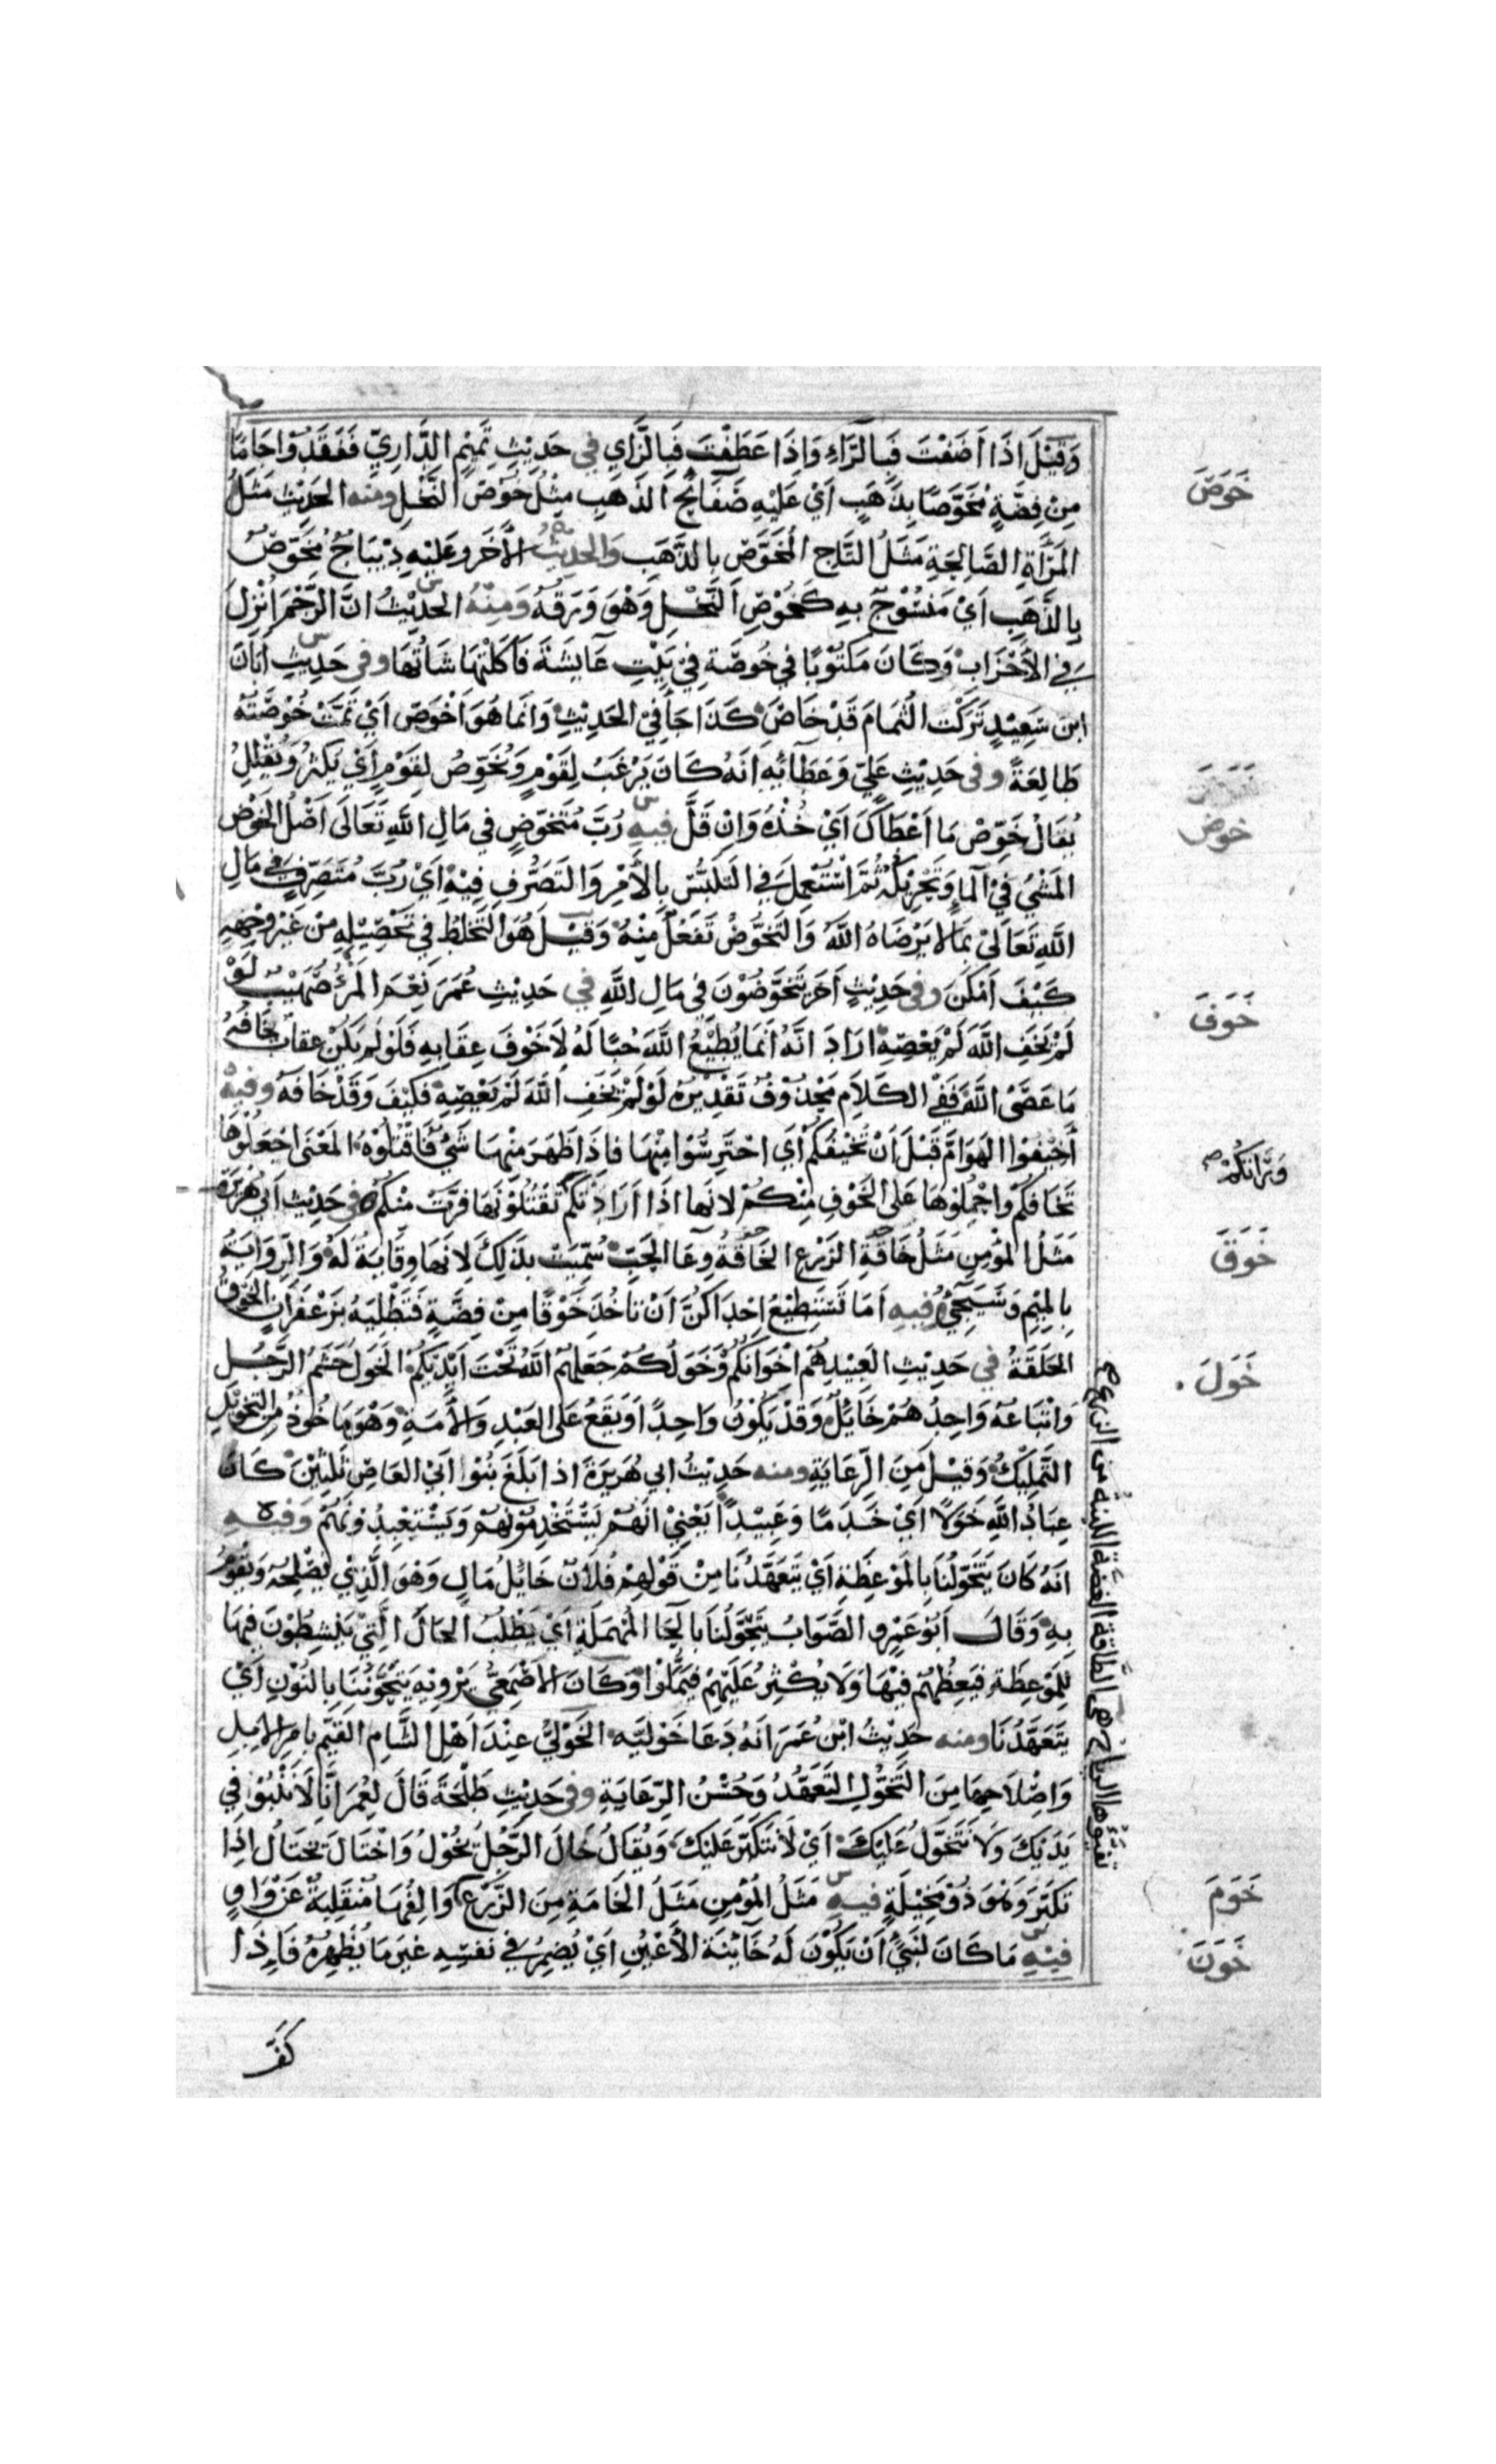 وَقِيْلَ اذَا اَضَفْتَ فَبِالرَّاءِ وَاِذَا عَطَفْتَ فَبِالزَّايِ في حَدِيْثِ تَمِيْمِ الدَّارِيّ فَفَقَدُوْا جَامًا
خَوَصَ
مِنْ فِضَّةٍ مُخَوَّصًا بِذَهَبٍ اَيْ عَلَيْهِ صَفَائحُ الذَهَبِ مِثْلُ خُوْصِ النَّخْلِ ومنه الحَدِيْثِ مَثَلُ
المَرْأَةِ الصَّالِحَةِ مَثَلُ التَّاجِ المُخَوَّصِ بِالذَّهَبِ وَالحَدِيْثُ الأَخَر وعَلَيْهِ دِيْبَاجٌ مُخَوَّصٌ
بِالذَّهَبِ اَيْ مَنْسُوْجٌ بِهِ كَخُوْصِ النَّخْلِ وَهْوَ وَرَقُهُ وَمِنْهُ الحَدِيْثُ انَّ الرَّجْمَ اُنْزِلَ
في الأَحْزَابِ وَكَانَ مَكْتُوْبًا في خُوصَّةٍ فِيْ بَيْتِ عَايِشَةَ فَاَكَلَتْهَا شَاتُهَا وفى حَدِيْثِ اَبَانَ
ابنِ سَعِيْدٍ تَرَكْتُ الثُمَامَ قَدْ خَاصَ كَذَا جَا فِيْ الحَدِيْثِ وَانَمَا هُوَ اَخْوَصَ اَيْ تَمَّتْ خُوْصَتُهُ
طَالِعَةً وفى حَدِيْثِ عَلِيّ وَعَطَائِهِ اَنَهُ كَانَ يَرْغَبُ لِقَوْمٍ وَيُخَوِّصُ لِقَوْمٍ اَيْ يَكْثِرُ وَيُقَلِلُ
خوض
يُقَالُ خَوِّصْ مَا اَعْطَاكَ اَيْ خُذْهُ وَاِنْ قَلَّ فِيهِ رُبَّ مُتَخَوِّضٍ في مَالِ اللّٰهِ تَعَالَى اَصْلُ الخَوْضِ
المَشْيُ فيْ المَاءِ وَتَحْرِيْكُهُ ثُمَّ اسْتُعْمِلَ في التَلَبُّسِ بِالأَمْرِ وَالتَصَرُّفِ فِيْهِ اَيْ رُبَّ مُتَصَرِّفٍ في مَالِ
اللّٰهِ تَعَالَىْ بِمَا لا يَرْضَاهُ اللّٰهُ وَالتَخَوُّضُ تَفَعُلٌ مِنْهُ وَقِيْلَ هُوَ التَخْلِيْطُ فِي تَحْصِيْلِهِ مِنْ غَيْرِ وَجْهِهِ
كَيْفَ اَمْكَنَ وفى حَدِيْثٍ اَخَر يَتَخَوَّضُوْنَ فيْ مَالِ اللّٰهِ في حَدِيْثِ عُمَرَ نِعْمَ المَرْءُ صُهَيْبٌ لَوْ
خَوَفَ
لَمْ يَخَفِ اللّٰهَ لَمْ يَعْصِهِ اَرَادَ انَّهُ اَنَمَا يُطِيْعُ اللّٰهَ حُبًّا لَهُ لاَ خَوْفَ عِقَابِهِ فَلَوْ لَمْ يَكُنْ عِقَابٌ يَخَافُهُ
مَا عَصَى اللّٰهَ فَفِي الكَلَامِ مَحْذُوْفٌ تَقْدِيْرُهُ لَوْ لَمْ يَخَفِ اللّٰهَ لَمْ يَعْصِهِ فَكَيْفَ وَقَدْ خَافَهُ وفيه
اَخِيْفُوْا الهَوَامَّ قَبْلَ اَنْ تُخِيْفَكُمْ اَيْ احْتَرِسُوْا مِنْهَا فَاِذَا ظَهَرَ مِنْهَا شَيْءٌ فَاقْتُلُوْهُ المَعْنَى اجْعَلُوْهَا
تَخَافُكُمْ وَاحْمِلُوْهَا عَلَى الخَوْفِ مِنْكُمْ لانَها اذَا اَرَادَتْكُمْ تَقْتُلُوْنَهَا فَرَّتْ مِنْكُمْ في حَدِيْثِ اَبِي هُرَيْرَةَ
خَوَقَ
مَثَلُ المُؤْمِنِ مَثَلُ خَافَةِ الزَرْعِ الخَافَةُ وِعَا الحَبِّ سُمِّيَتْ بِذَلِكَ لاِنَهَا وِقَايَةٌ لَهُ وَالرِّوَايَةُ
بِالمِيْمِ وَسَيَجِيْءُ وفيه اَمَا تَسْتَطِيْعُ اِحْدَاكُنَّ اَنْ تَاخُذَ خَوْقًا مِنْ فِضَّةٍ فَتَطْلِيَهُ بِزَعْفَرَانٍ الخَوْقُ
خَوَلَ
الحَلَقَةُ في حَدِيْثِ العَبِيْدِ هُم اِخْوَانُكُمْ وَخَوَلُكُمْ جَعَلَهُمُ اللّٰهُ تَحْتَ اَيْدِيْكُمْ الخَوَلُ حَشَمُ الرَّجُلِ
وَاتْبَاعُهُ وَاحِدُهُمْ خَايِلٌ وَقَدْ يَكُوْنُ وَاحِدًا وَيَقَعُ عَلَى العَبْدِ وَالأَمَةِ وَهْوَ مَاخُوْذٌ مِنَ التَخْوِيْلِ
التَمْلِيْكُ وَقِيْلَ مِنَ الرِّعَايَةِ ومنه حَدِيْثُ ابي هُرَيْرَةَ اذا بَلَغَ بَنُوْا اَبيْ العَاصِ ثَلثِيْنَ كَانَ
عِبَادُ اللّٰهِ خَوَلًا اَيْ خَدَمًا وَعَبِيْدًا يَعْنِيْ اَنَهُمْ يَسْتَخْدِمُوْنَهُمْ وَيَسْتَعْبِدُوْنَهُمْ وَفيهِ
اَنَهُ كَانَ يَتَخَوَّلُنَا بِالمَوْعِظَةِ اَيْ يَتَعَهَّدُنَا مِنْ قَوْلِهِمْ فُلاَنٌ خَائِلُ مَالٍ وَهْوَ الَّذِيْ يُصْلِحُهُ وَيَقُوْمُ
بِهِ وَقَالَ اَبُوْ عَمْرٍو الصَّوَابُ يَتَحَوَّلُنَا بِالحَا المُهْمَلَةِ اَيْ يَطْلُبُ الحَالَ الَّتِيْ يَنْشِطُوْنَ فِيْهَا
لِلْمَوْعِظَةِ فَيَعِظُهُمْ فِيْهَا وَلَا يُكْثِرُ عَلَيْهِمْ فَيَمَلُّوْا وَكَانَ الأَصْمَعِيُّ يَرْوِيْهِ يَتَخَوَّنُنَا بِالنُوْنِ اَيْ
يَتَعَهَّدُنَا ومنه حَدِيْثُ ابْنِ عُمَرَ اَنَهُ دَعَا خَوْلِيَّهِ الخَوْلِيُّ عِنْدَ اَهْلِ الشَّامِ القَيِّمُ بِاَمْرِ الاِبِلِ
وَاِصْلَاحِهَا مِنَ التَخَوُّلِ التَعَهُّدُ وَحُسْنُ الرِّعَايَةِ وفى حَدِيْثِ طَلْحَةَ قَالَ لِعُمَرَ اَنَّا لَا نَنْبُوْا فِي
يَدَيْكَ وَلَا نَتَخَوَّلُ عَلَيْكَ اَيْ لَا نَتَكَبَّرُ عَلَيْكَ وَيُقَالُ خَالَ الرَّجُلُ يَخُوْلُ وَاخْتَالَ يَخْتَالُ اذَا
خَوَمَ
تَكَبَّرَ وَهُوَ ذُوْ مَخِيْلَةٍ فيه مَثَلُ المُؤْمِنِ مَثَلُ الخَامَةِ مِنَ الزَّرْعِ وَالِفُهَا مُنْقَلِبَةٌ عَنْ وَاوٍ
خَوَنَ
فِيْهِ مَا كَانَ لنَبِيٍّ اَنْ يَكُوْنَ لَهُ خَائِنَةُ الأَعْيُنِ اَيْ يُضْمِرُ في نَفسِهِ غَيرَ مَا يُظْهِرُهُ فَاِذَا
كَفَّ
تفيؤها الرياح هى الطاقة الغضة اللينة من الزرع صح